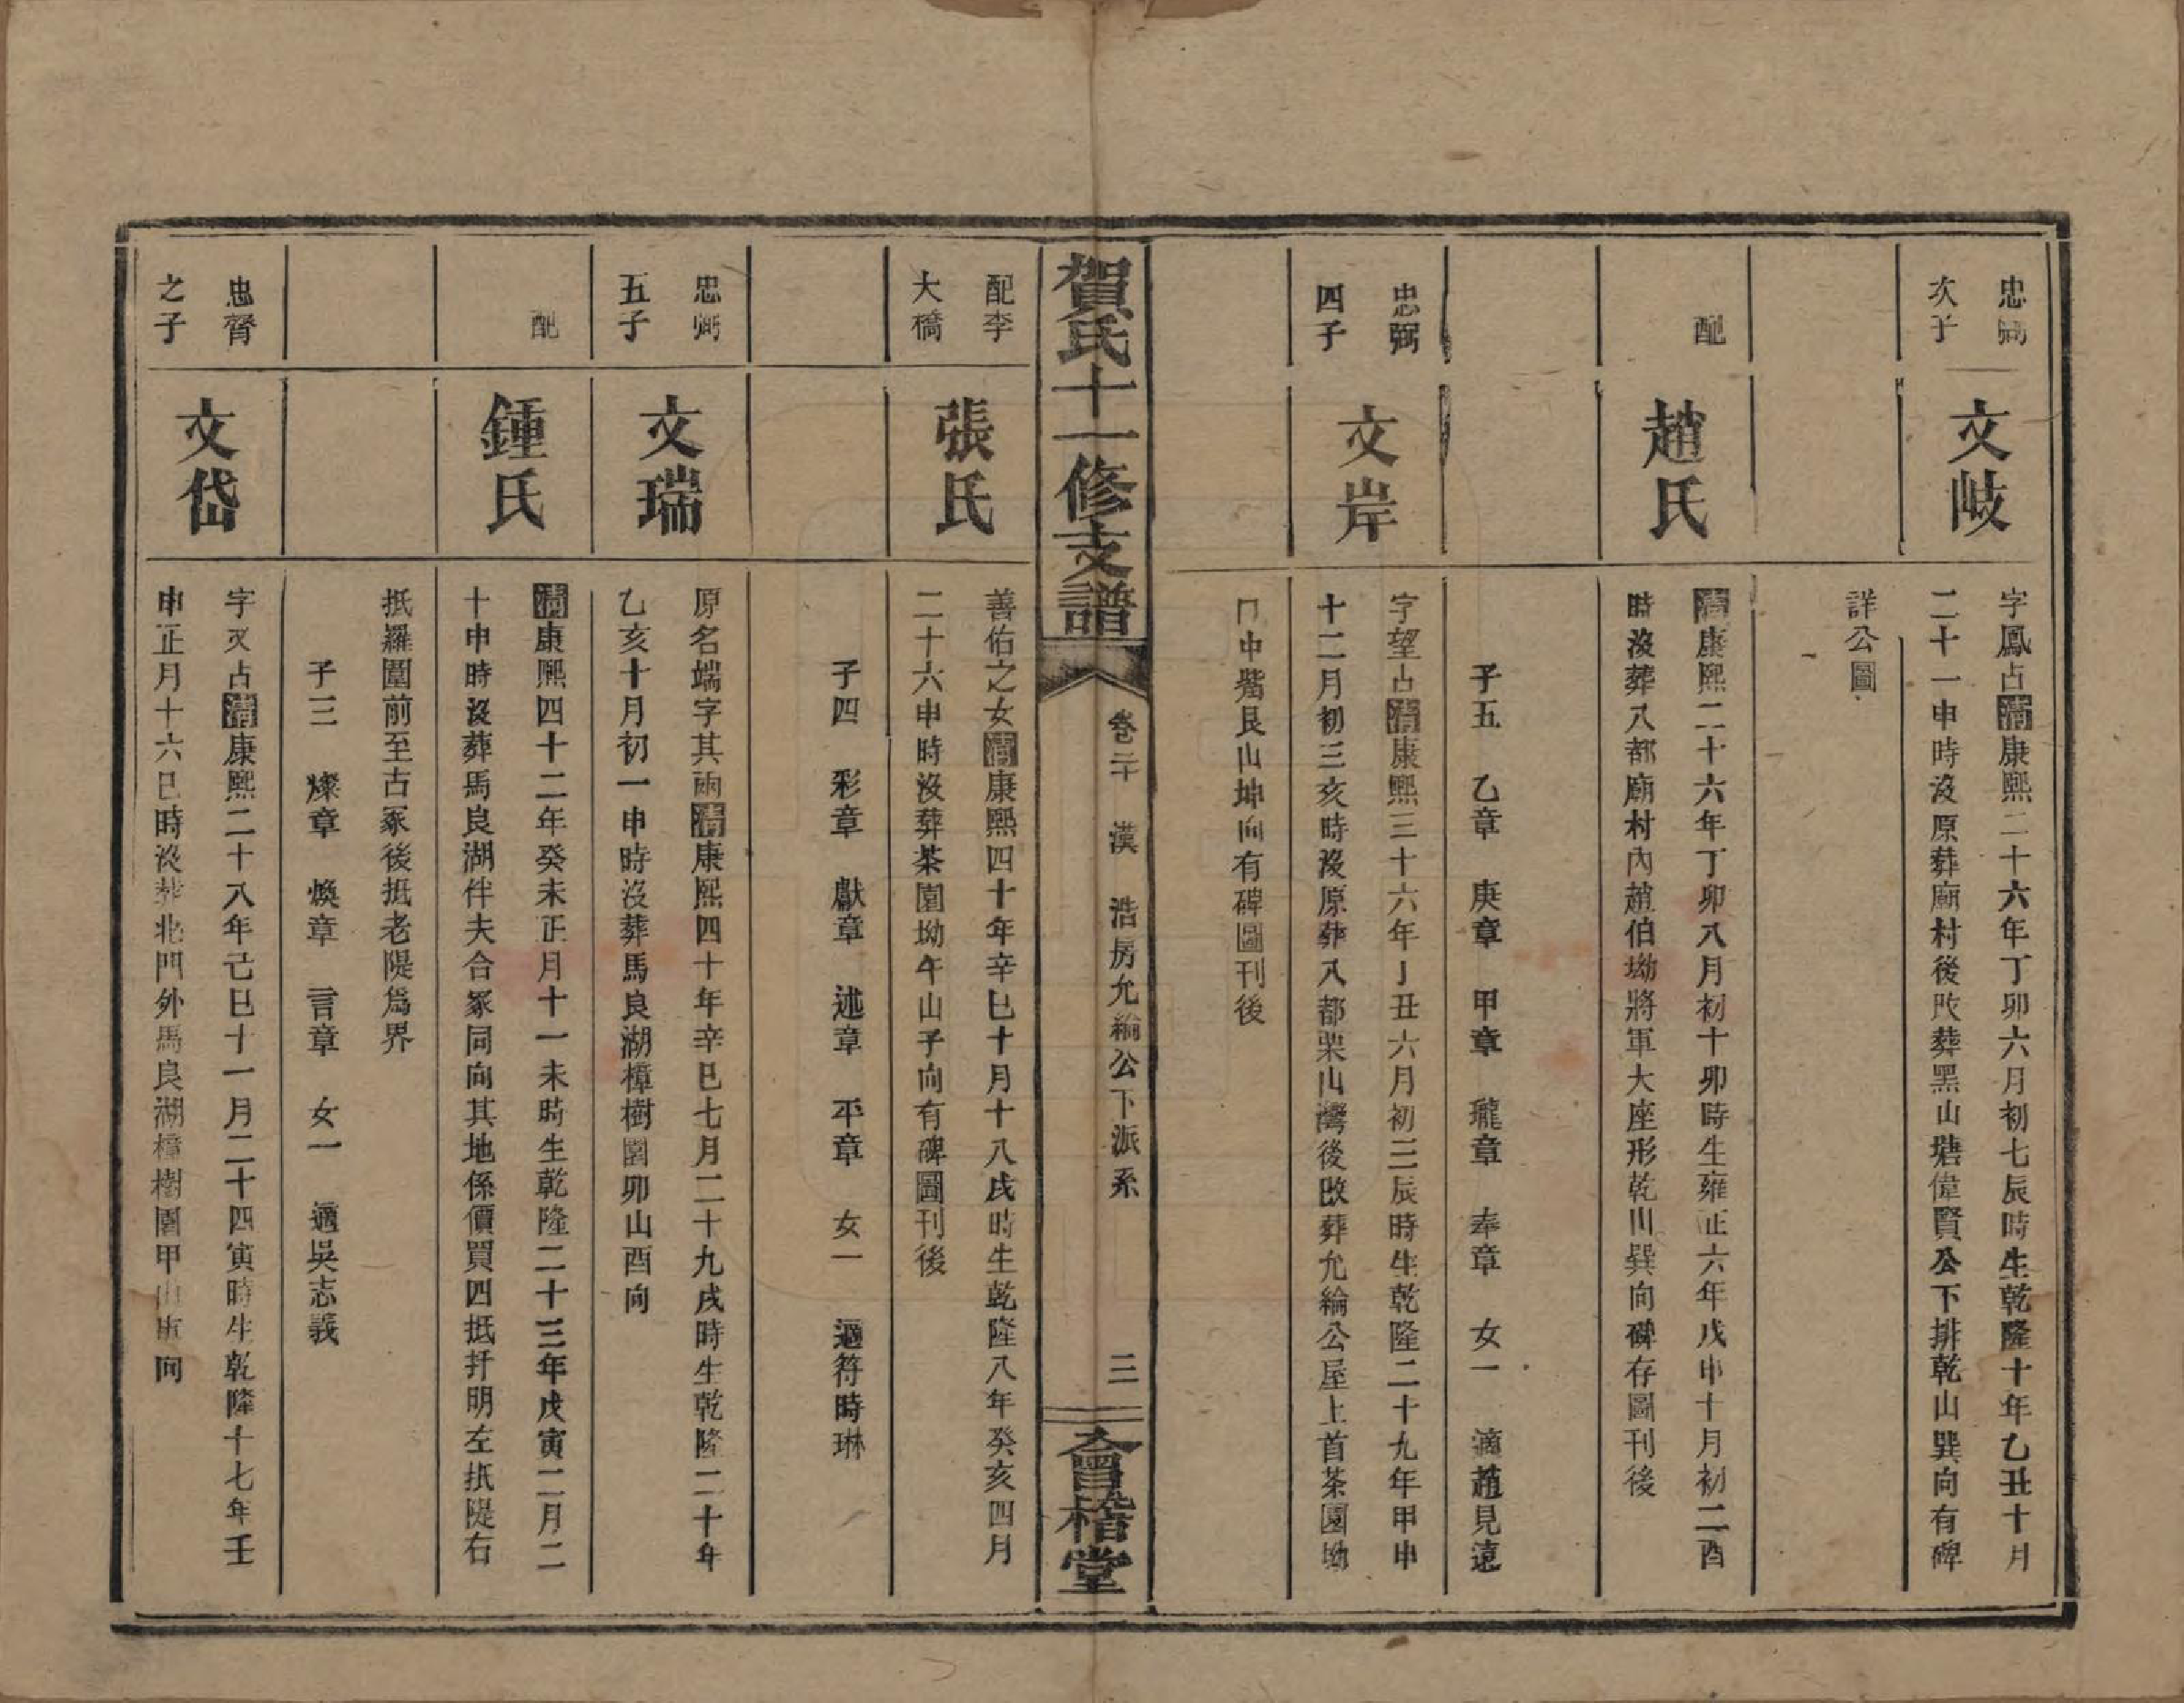 忠弼
次子
文岐
字鳳占清康熙二十六年丁卯六月初七辰時生乾隆十年乙丑十月
二十一申時沒原葬廟村後改葬黑山塘偉賢公下排乾山巽向有碑
詳公圖
配
趙氏
清康熙二十六年丁卯八月初十卯時生雍正六年戊申十月初二酉
時沒葬八都廟村內趙伯坳將軍大座形乾山巽向碑存圖刊後
子五 乙章 庚章 甲章 瓏章 奉章 女一 適趙見遠
忠弼
四子
文岸
字望占清康熙三十六年丁丑六月初三辰時生乾隆二十九年甲申
十二月初三亥時沒原葬八都栗山灣後改葬允綸公屋上首茶園坳
門中嘴艮山坤向有碑圖刊後
賀氏十一修支譜
卷二十 漢 浩房允綸公下派系
三
會稽堂
配李
大橋
張氏
善佑之女清康熙四十年辛巳十月十八戌時生乾隆八年癸亥四月
二十六申時沒葬茶園坳午山子向有碑圖刊後
子四 彩章 獻章 述章 平章 女一 適符時琳
忠弼
五子
文瑞
原名端字其雨清康熙四十年辛巳七月二十九戌時生乾隆二十年
乙亥十月初一申時沒葬馬良湖樟樹園卯山酉向
配
鍾氏
清康熙四十二年癸未正月十一未時生乾隆二十三年戊寅二月二
十申時沒葬馬良湖伴夫合冢同向其地係價買四抵扦明左抵隄右
抵羅圍前至古冢後抵老隄為界
子三 燦章 煥章 言章 女一 適吳志義
忠膂
之子
文岱
字攵占清康熙二十八年己巳十一月二十四寅時生乾隆十七年壬
申正月十六巳時沒葬北門外馬良湖樟樹園甲山庚向